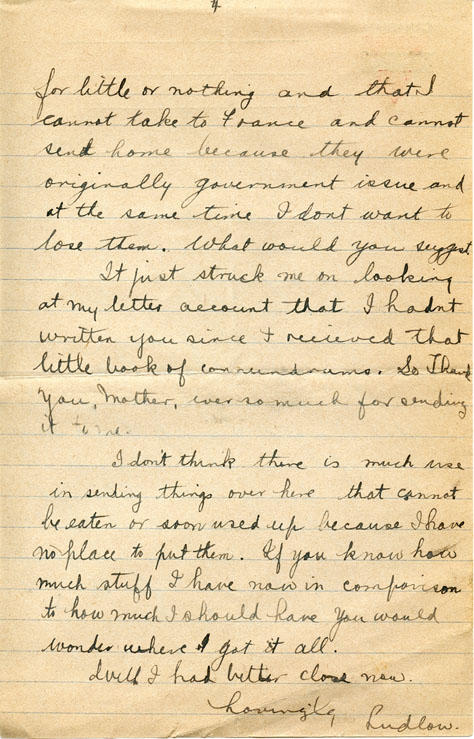 4
for little or nothing and that I
cannot take to France and cannot
send home because they were
originally government issue and
at the same time I dont want to
lose them. What would you suggest
It just struck me on looking
at my letter account that I hadn't
written you since I recieved that
little book of connundrums. So Thank
you, Mother, ever so much for sending
it to me.
I don't think there is much use
in sending things over here that cannot
be eaten or soon used up because I have
no place to put them. If you know how
much stuff I have now in comparison
to how much I should have you would
wonder where I got it all.
Well I had better close now.
Lovingly
Ludlow.